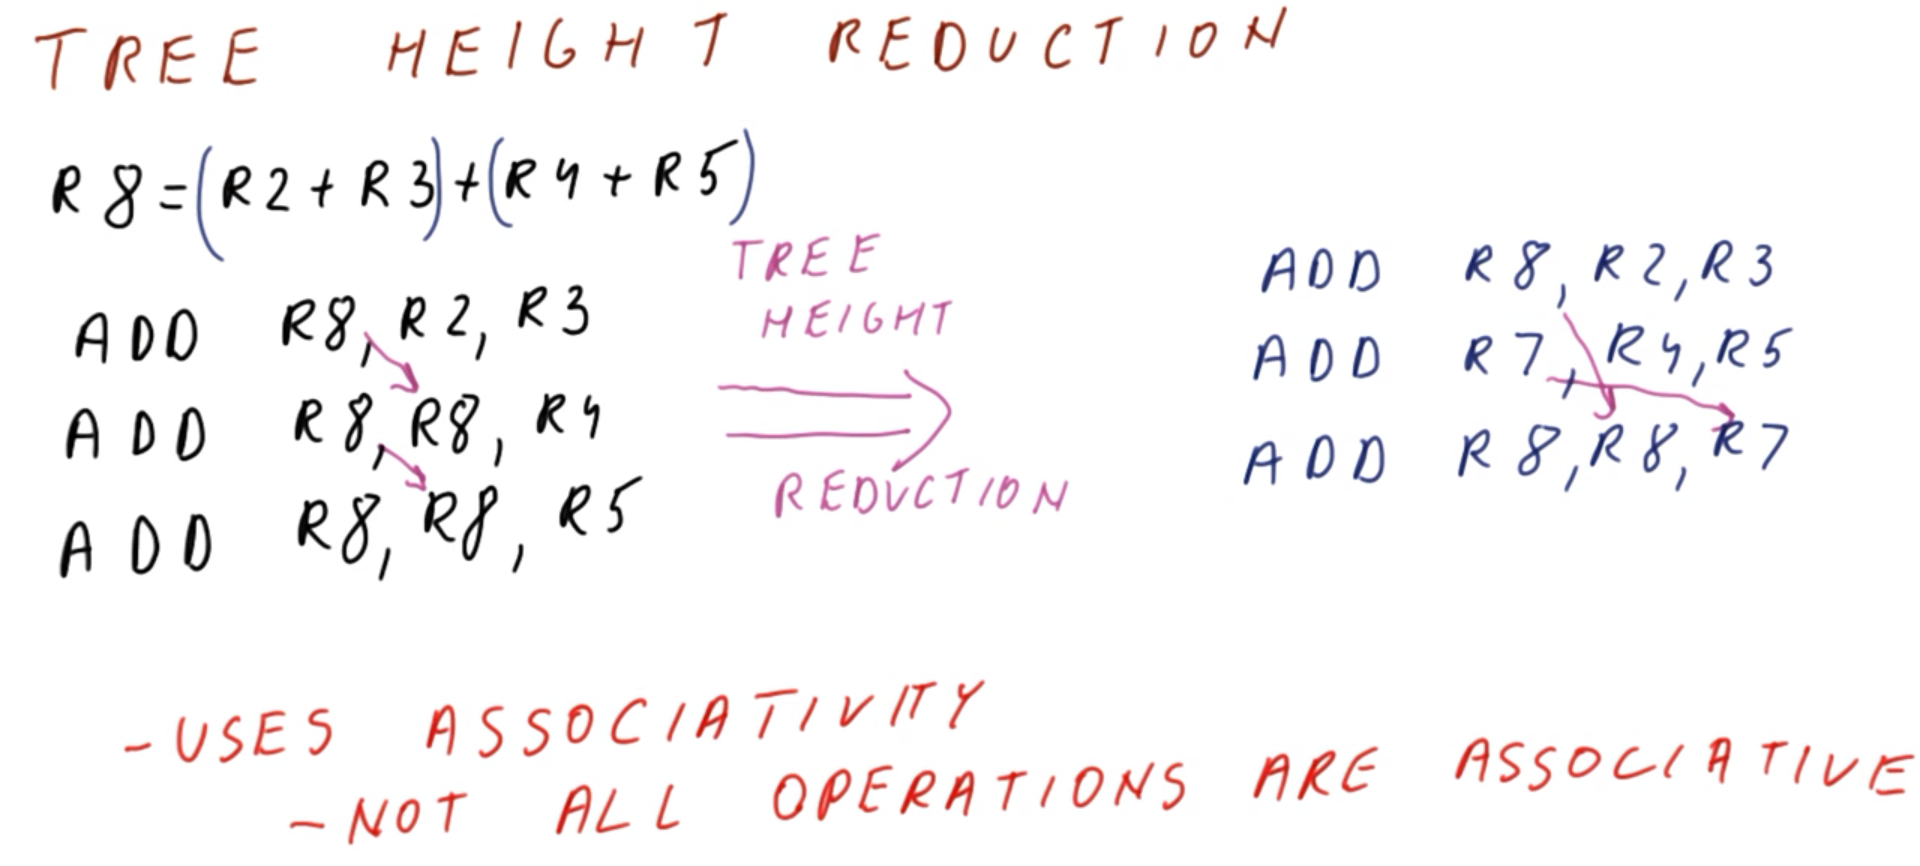 TREE HEIGHT REDUCTION
R8=(R2+R3)+(R4+R5)
ADD R8, R2, R3
ADD R8, R8, R4
ADD R8, R8, R5
TREE
HEIGHT
REDUCTION
ADD R8, R2, R3
ADD R7, R4, R5
ADD R8, R8, R7
- USES ASSOCIATIVITY
- NOT ALL OPERATIONS ARE ASSOCIATIVE